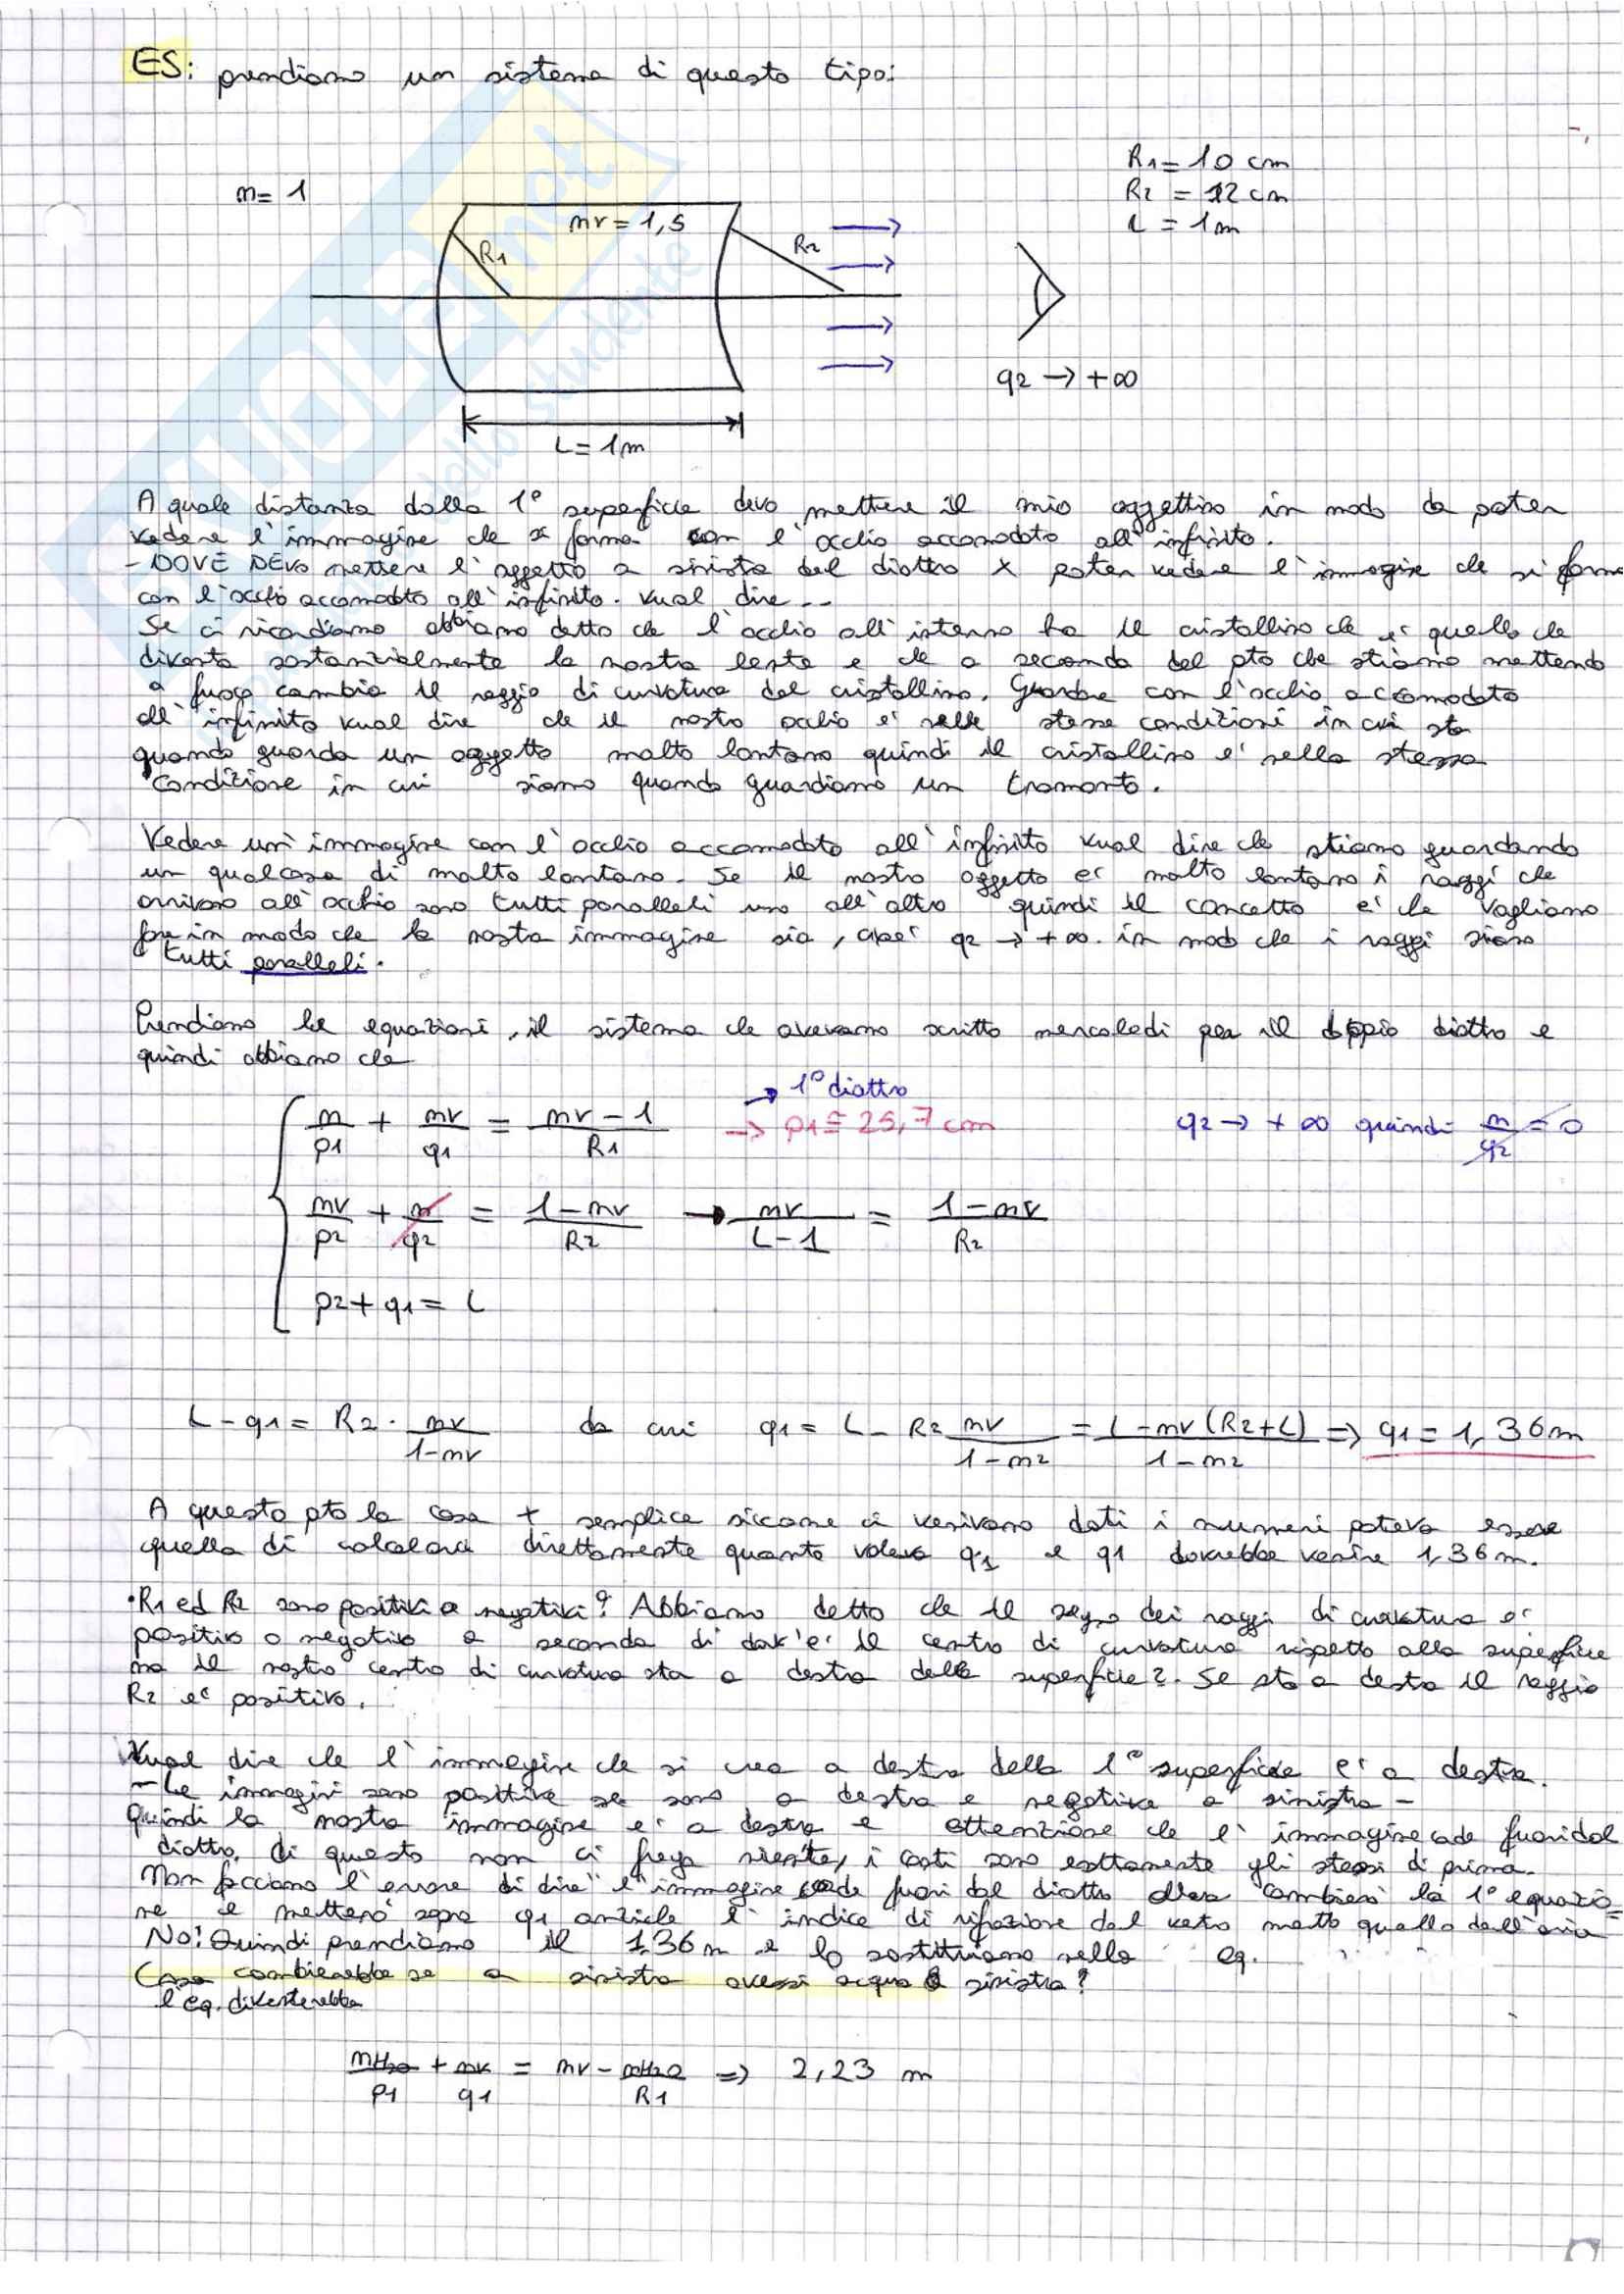 ES: prendiamo un sistema di questo tipo:
R1 = 10 cm
R2 = 12 cm
L = 1m
n = 1
nv = 1,5
R1
R2
q2 → +∞
L = 1m
A quale distanza dalla 1° superficie devo mettere il mio oggettino in modo da poter
vedere l'immagine che si forma con l'occhio accomodato all'infinito.
- DOVE DEVO mettere l'oggetto a sinistra del diottro x poter vedere l'immagine che si forma
con l'occhio accomodato all'infinito. Vuol dire --
Se ci ricordiamo abbiamo detto che l'occhio all'interno ha il cristallino che è quello che
diventa sostanzialmente la nostra lente e che a seconda del pto che stiamo mettendo
a fuoco cambia il raggio di curvatura del cristallino. Guardare con l'occhio accomodato
all'infinito vuol dire che il nostro occhio è nelle stesse condizioni in cui sta
quando guarda un oggetto molto lontano quindi il cristallino è nella stessa
condizione in cui siamo quando guardiamo un tramonto.
Vedere un'immagine con l'occhio accomodato all'infinito vuol dire che stiamo guardando
un qualcosa di molto lontano. Se il nostro oggetto è molto lontano i raggi che
arrivano all'occhio sono tutti paralleli uno all'altro quindi il concetto è che vogliamo
fare in modo che la nostra immagine sia, cioè q2 → +∞. in modo che i raggi siano
tutti paralleli.
Prendiamo le equazioni, il sistema che avevamo scritto mercoledì per il doppio diottro e
quindi abbiamo che
n/p1 + nv/q1 = nv - 1/R1 → 1° diottro → p1 ≅ 25,7 cm q2 → +∞ quindi n/q2 = 0
nv/p2 + n/q2 = 1 - nv/R2 → nv/L-1 = 1 - nv/R2
p2 + q1 = L
L - q1 = R2 · nv/1-nv da cui q1 = L - R2 nv/1-n2 = L - nv (R2+L)/1-n2 => q1 = 1,36m
A questo pto la cosa + semplice siccome ci venivano dati i numeri poteva essere
quella di calcolarci direttamente quanto valeva q1 e q1 dovrebbe venire 1,36 m.
• R1 ed R2 sono positivi o negativi? Abbiamo detto che il segno dei raggi di curvatura è
positivo o negativo a seconda di dov'è il centro di curvatura rispetto alla superficie
ma il nostro centro di curvatura sta a destra della superficie?. Se sta a destra il raggio
R2 è positivo.
Vuol dire che l'immagine che si crea a destra della 1° superficie è a destra.
- Le immagini sono positive se sono a destra e negative a sinistra -
Quindi la nostra immagine è a destra e attenzione che l'immagine cade fuori dal
diottro, di questo non ci frega niente, i conti sono esattamente gli stessi di prima.
Non facciamo l'errore di dire "l'immagine cade fuori dal diottro allora cambierò la 1° equazio=
ne e metterò sopra q1 anziché l'indice di rifrazione del vetro metto quello dell'aria
No! Quindi prendiamo il 1,36 m e lo sostituiamo nella eq.
Cosa cambierebbe se a sinistra avessi acqua a sinistra?
l'eq. diventerebbe
nH2O/p1 + nv/q1 = nv - nH2O/R1 => 2,23 m